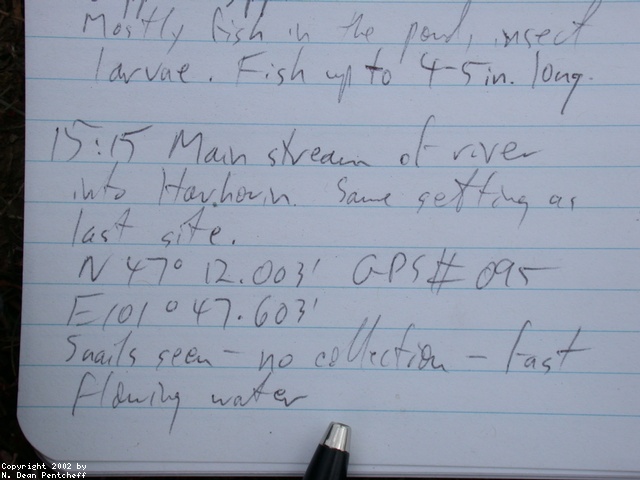 Mostly fish in the pond, insect
larvae. Fish up to 4-5 in. long.
15:15 Main stream of river
into Harhorin. Same setting as
last site.
N 47° 12.003' GPS# 095
E 101° 47.603'
Snails seen - no collection - fast
flowing water
Copyright 2002 by
N. Dean Pentcheff